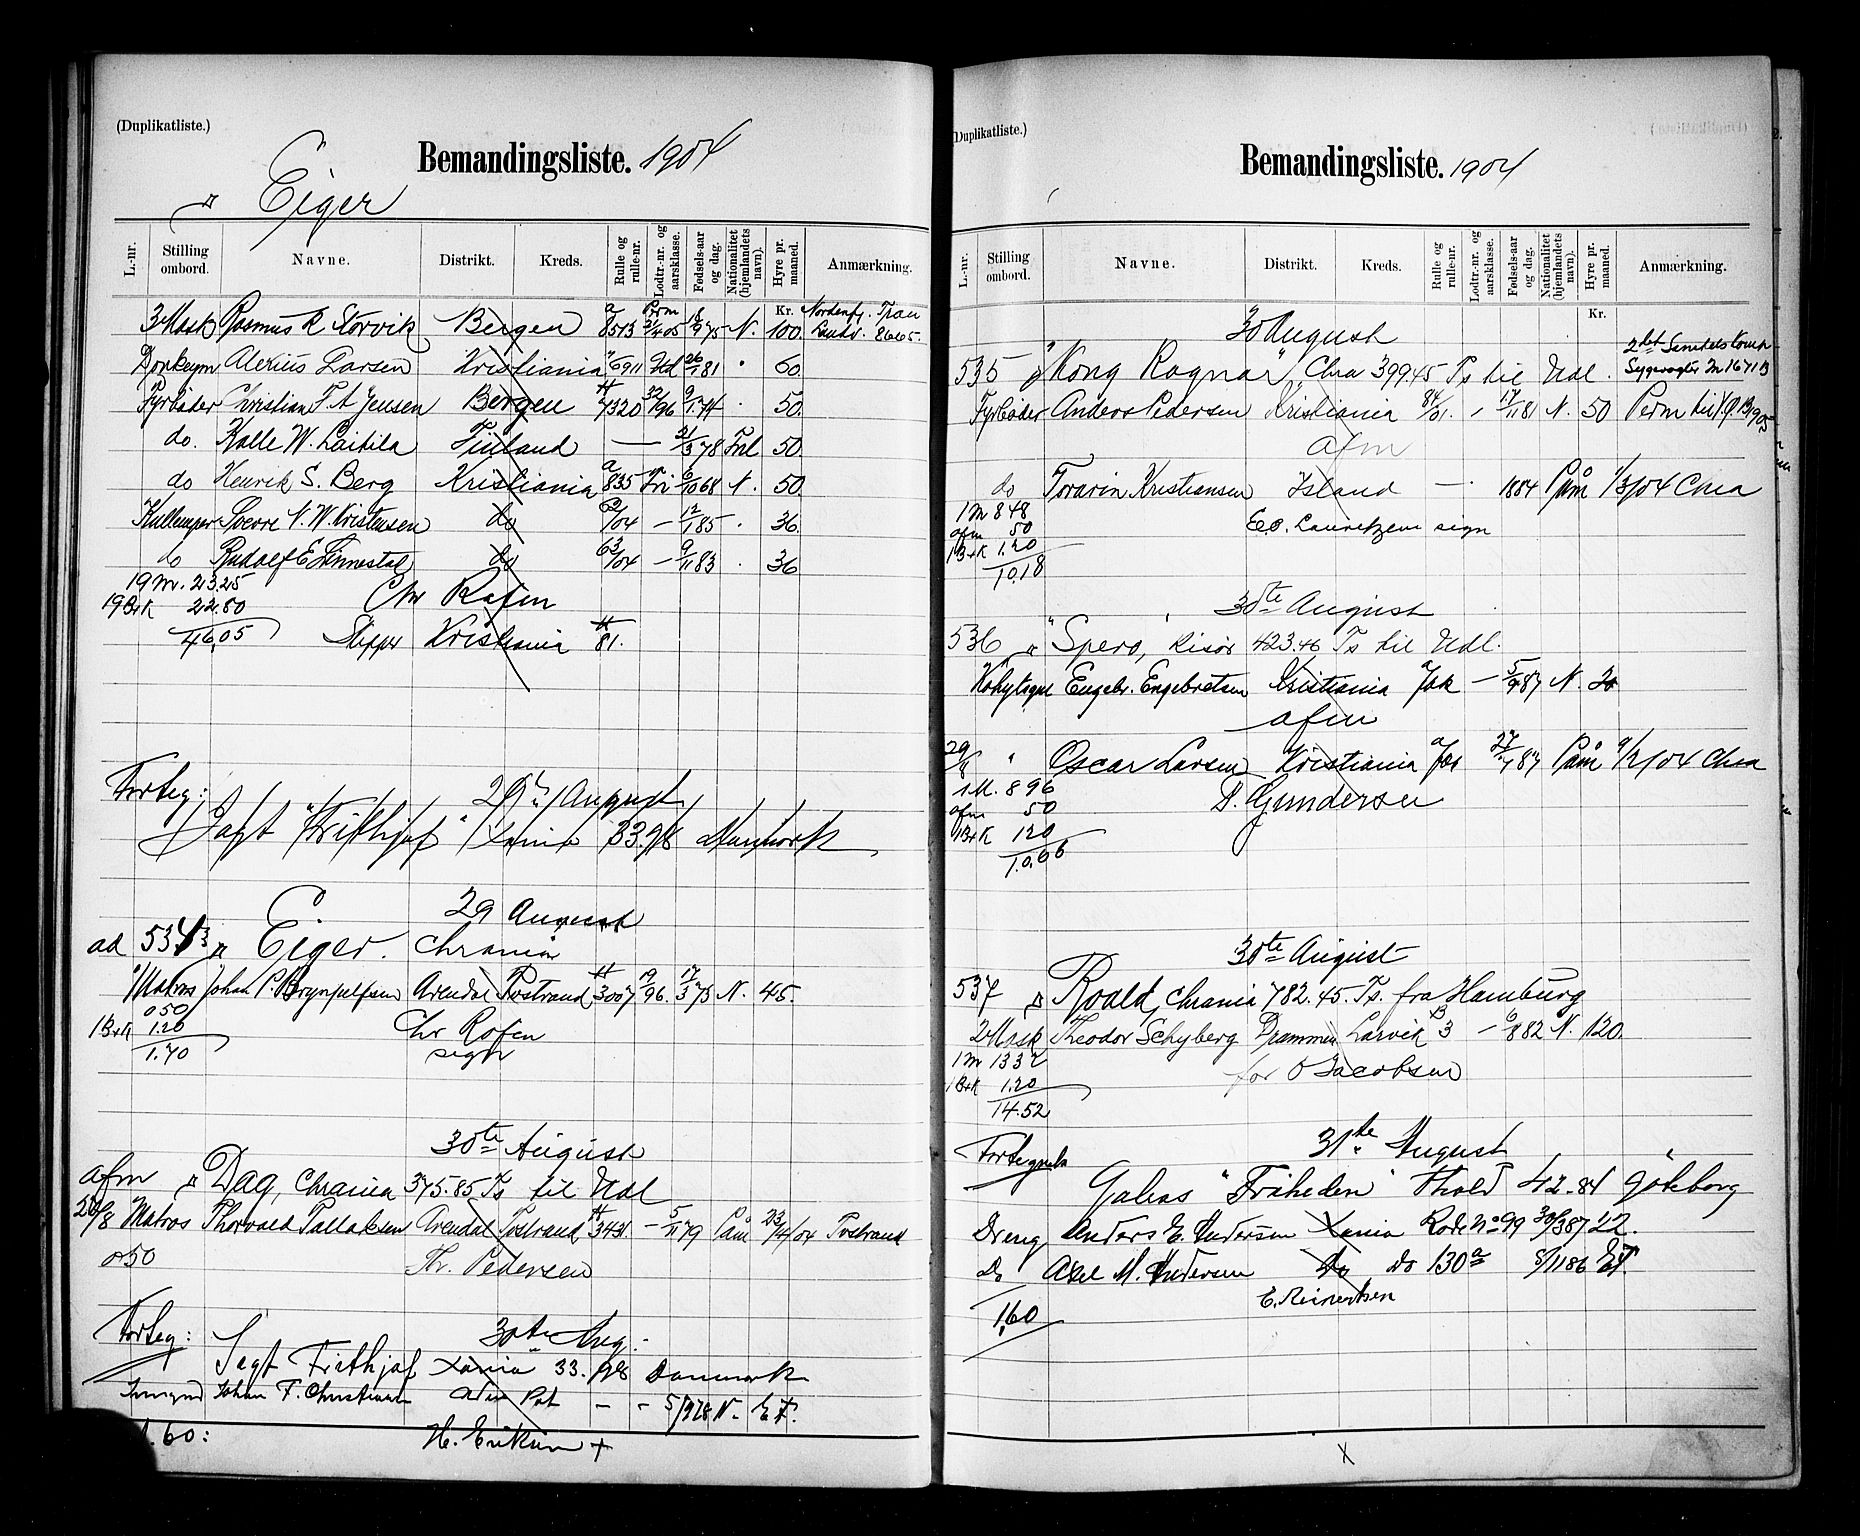 (Duplikatliste.)
Bemandingsliste. 1904
Eiger
L.-nr. Stilling ombord. Navne. Distrikt. Kreds. Rulle og rulle-nr. Lodtr.-nr. og aarsklasse. Fødsels-aar og dag. Nationalitet (hjemlandets navn). Hyre pr. maaned. Anmærkning.
Kr.
3 Mask Rasmus R Storvik Bergen 8513 N. 100.
Donkeym Alexius Larsen Kristiania 6911 26/1 81 60
Fyrbøder Christian F. A Jensen Bergen 7320 50.
do. Kalle W. Laitila Finland — 21/3 78 Fnl 50
do Henrik S. Berg Kristiania 835 Fri 6/10 68 N. 50
Kullemper Soerre N. W. Kristensen do 62/04 — 12/1 85 . 36
do Rudolf E. Linnestad do 63/04 — 9/11 83 . 36
19 M. 23.25
19 B+K 22.80
46.05
Chr Rafen
Skipper Kristiania 81.
Forteg:
29de August
Jagt "Frithjof" Xania 33.98 Danmark
29 August
ad 534 Eiger. Chrania
1 Matros Johan P. Brynjulfsen Arendal Tvestrand 3007 19/96. 17/3 75 N. 45.
050
1 B+K 1.20
1.70
Chr Rafen
sign
30te August
afm Dag, Chrania 375.85 Ts til Udl
Matros Thorvald Tallaksen Arendal Tvestrand 3431 — 5/11 79 Påm 23/4/04 Tvestrand
050
Th. Pedersen
Forteg:
30te Aug:
Jagt Frithjof Xania 33.98 Danmark
Johan F. Christiansen — - N- E F.
.60:
H. Eriksen +
(Duplikatliste.)
Bemandingsliste. 1904
L.-nr. Stilling ombord. Navne. Distrikt. Kreds. Rulle og rulle-nr. Lodtr.-nr. og aarsklasse. Fødsels-aar og dag. Nationalitet (hjemlandets navn). Hyre pr. maaned. Anmærkning.
Kr.
30 August
535 "Kong Ragnar" Chra 399.45 Ts til Udl.
Fyrbøder Anders Pedersen Kristiania 84/01. 17/11 81 N. 50
afm
do Torarin Kristiansen Island — 1884 Påm 1/3/04 Chra
1 M 848
afm 50
1 B+K 1.20
10.18
E.O. Lauretzen sign
30te August
536 "Spero", Risør 423.46 Ts til Udl.
Kahytsgut Engebr. Engebretsen Kristiania — 5/9 87 N. 20
afm
29/8 " Oscar Larsen Kristiania 87 Påm 9/2/04 Chra
1 M. 896
afm 50
1 B+K 120
10.66
D. Gundersen
30te August
537 Roald, Chrania 782.45. Ts. fra Hamburg
2 Mask Theodor Schyberg Drammen Larvik 3 — 882 N. 120.
1 M 1332
1 B+K 1.20
14.52
for O Jacobsen
31te August
Fortegnels
Galeas "Friheden" Thold 42.84 Gøteborg
Dreng Anders E. Andersen Xania Rode No 99 30/3 87 22.
Do Axel M. Andersen Do Do 130a 8/11 86 EF.
E. Reinertsen
1.60
X